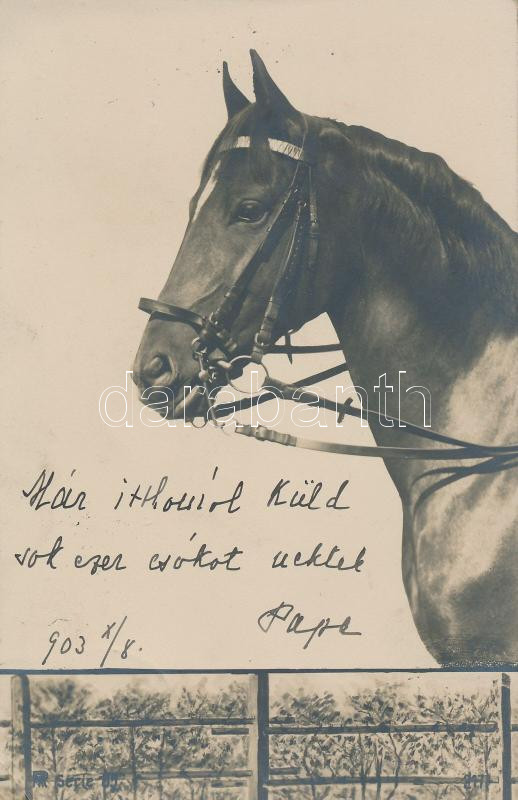 darabanth
Már itthonról Küld
sok ezer csókot nektek
Papa
903 X/8.
Serie